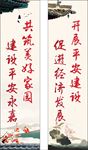 开展平安建设
促进经济发展
共筑美好家园
建设平安永嘉